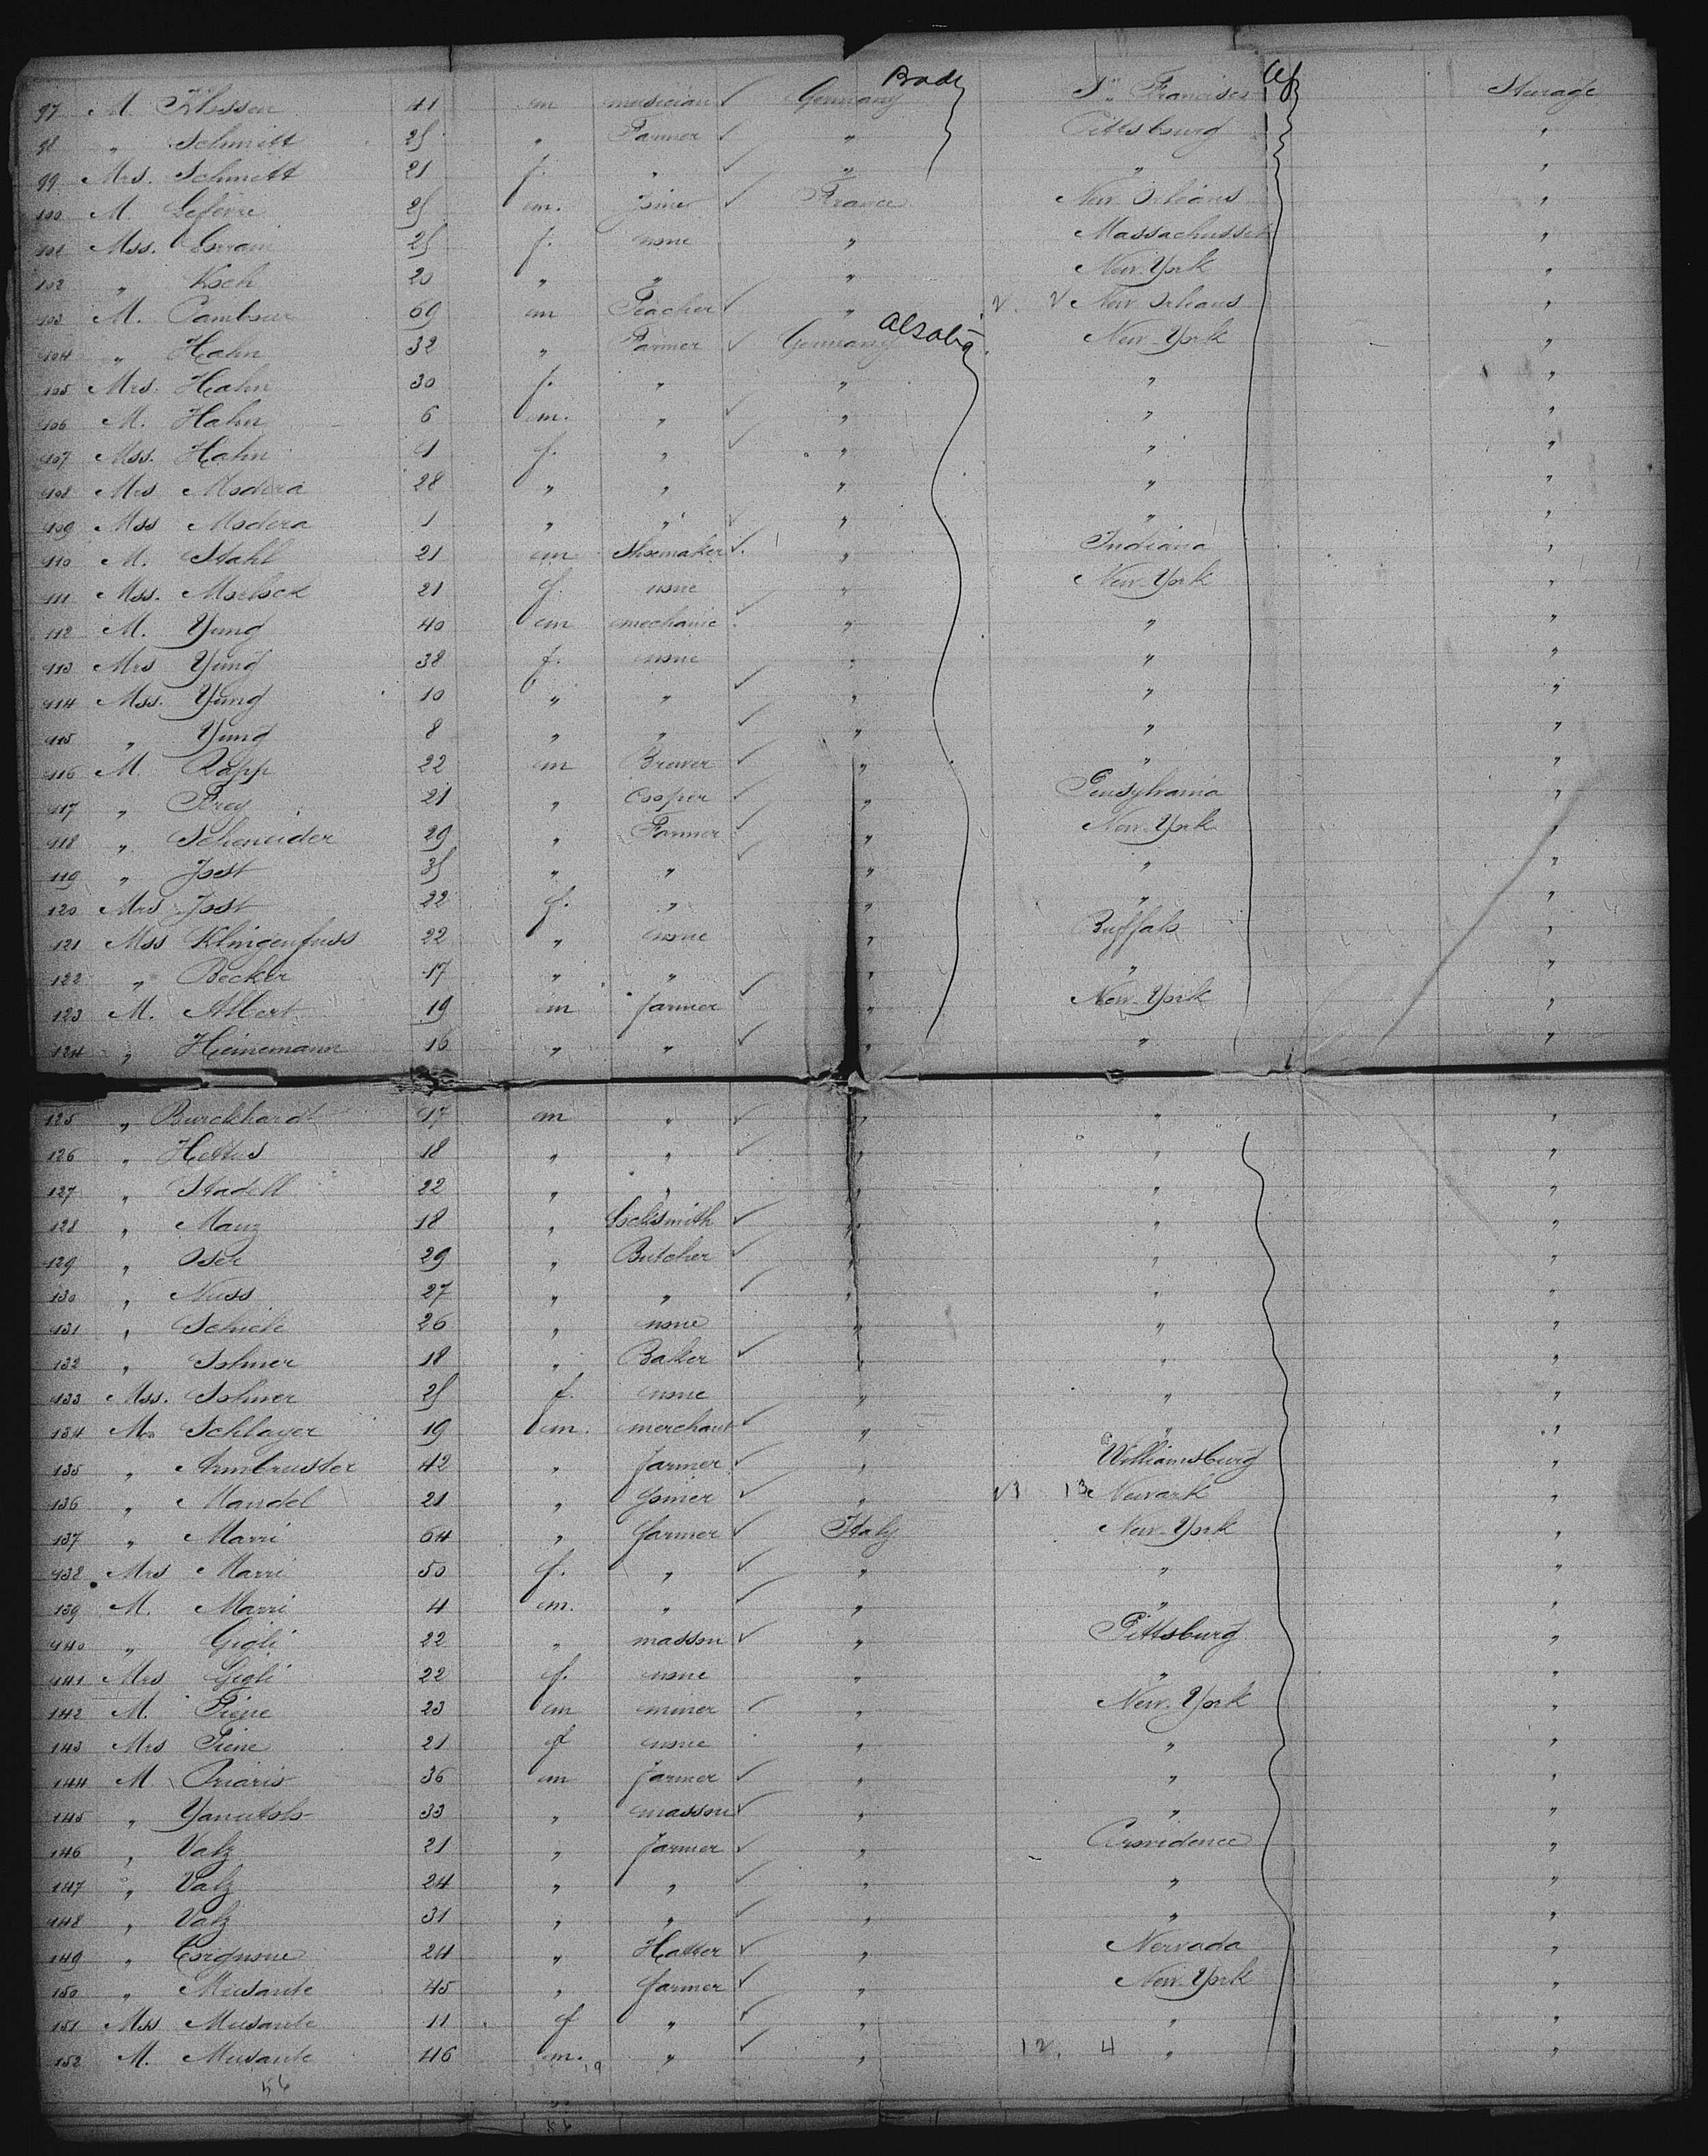 Bade
97 M. Klessen 41 m musician ✓ Germany Sn Francisco Sterage
98 " Schmitt 25 " Farmer ✓ " Pittsburg "
99 Mrs. Schmitt 21 f. " ✓ " " "
100 M. Lefevre 25 m. joiner ✓ France New Orleans "
101 Mss. Lorrain 25 f. none " Massachussets "
102 " Koch 20 " " " New-York "
103 M. 69 m Teacher ✓ " New Orleans "
104 " Hahn 32 " Farmer ✓ Germany Alsatia New-York "
105 Mrs. Hahn 30 f. " " " "
106 M. Hahn 6 m. " ✓ " " "
107 Mss. Hahn 9 f. " ✓ " " "
108 Mrs Modera 28 " " " " "
109 Mss Modera 1 " " ✓ " " "
110 M. Stahl 21 m Shoemaker ✓ " Indiana "
111 Mss. Morlock 21 f. none " New-York "
112 M. Yung 40 m mechanic ✓ " " "
113 Mrs Yung 38 f. none " " "
114 Mss. Yung 10 " " ✓ " " "
115 " Yung 8 " " ✓ " " "
116 M. Rapp 22 m Brewer ✓ " " "
117 " Frey 21 " Cooper ✓ " Pensylvania "
118 " Schneider 29 " Farmer ✓ " New-York "
119 " Jost 35 " " ✓ " " "
120 Mrs Jost 22 f. " " " "
121 Mss Klingenfuss 22 " none " Buffalo "
122 " Becker 17 " " ✓ " " "
123 M. Albert 19 m farmer ✓ " New-York "
124 " Heinemann 16 " " ✓ " " "
125 " Burckhardt 17 m " ✓ " " "
126 " 18 " " ✓ " " "
127 " Stadell 22 " " " " "
128 " Manz 18 " Locksmith ✓ " " "
129 " Oser 29 " Butcher ✓ " " "
130 " Nuss 27 " " ✓ " " "
131 " Schick 26 " none " " "
132 " Sohmer 18 " Baker ✓ " " "
133 Mss. Sohmer 25 f. none " " "
134 M. Schlager 19 m. merchant ✓ " " "
135 " Armbruster 42 " farmer ✓ " Williamsburg "
136 " Mandel 21 " joiner ✓ " 13 Newark "
137 " Marri 64 " farmer ✓ Italy New-York "
138 Mrs Marri 50 f. " ✓ " " "
139 M. Marri 4 m. " ✓ " " "
140 " Gigli 22 " masson ✓ " Pittsburg "
141 Mrs Gigli 22 f. none " " "
142 M. Piene 23 m miner ✓ " New-York "
143 Mrs Piene 21 f none " " "
144 M. 36 m farmer ✓ " " "
145 " 33 " masson ✓ " " "
146 " Valz 21 " farmer ✓ " Providence "
147 " Valz 24 " " ✓ " " "
148 " Valz 31 " " ✓ " " "
149 " 24 " Hatter ✓ " Nervada "
150 " Musante 45 " farmer ✓ " New-York "
151 Mss Musante 11 f " ✓ " " "
152 M. Musante 46 m. " ✓ " 12. 4 " "
56 19
56